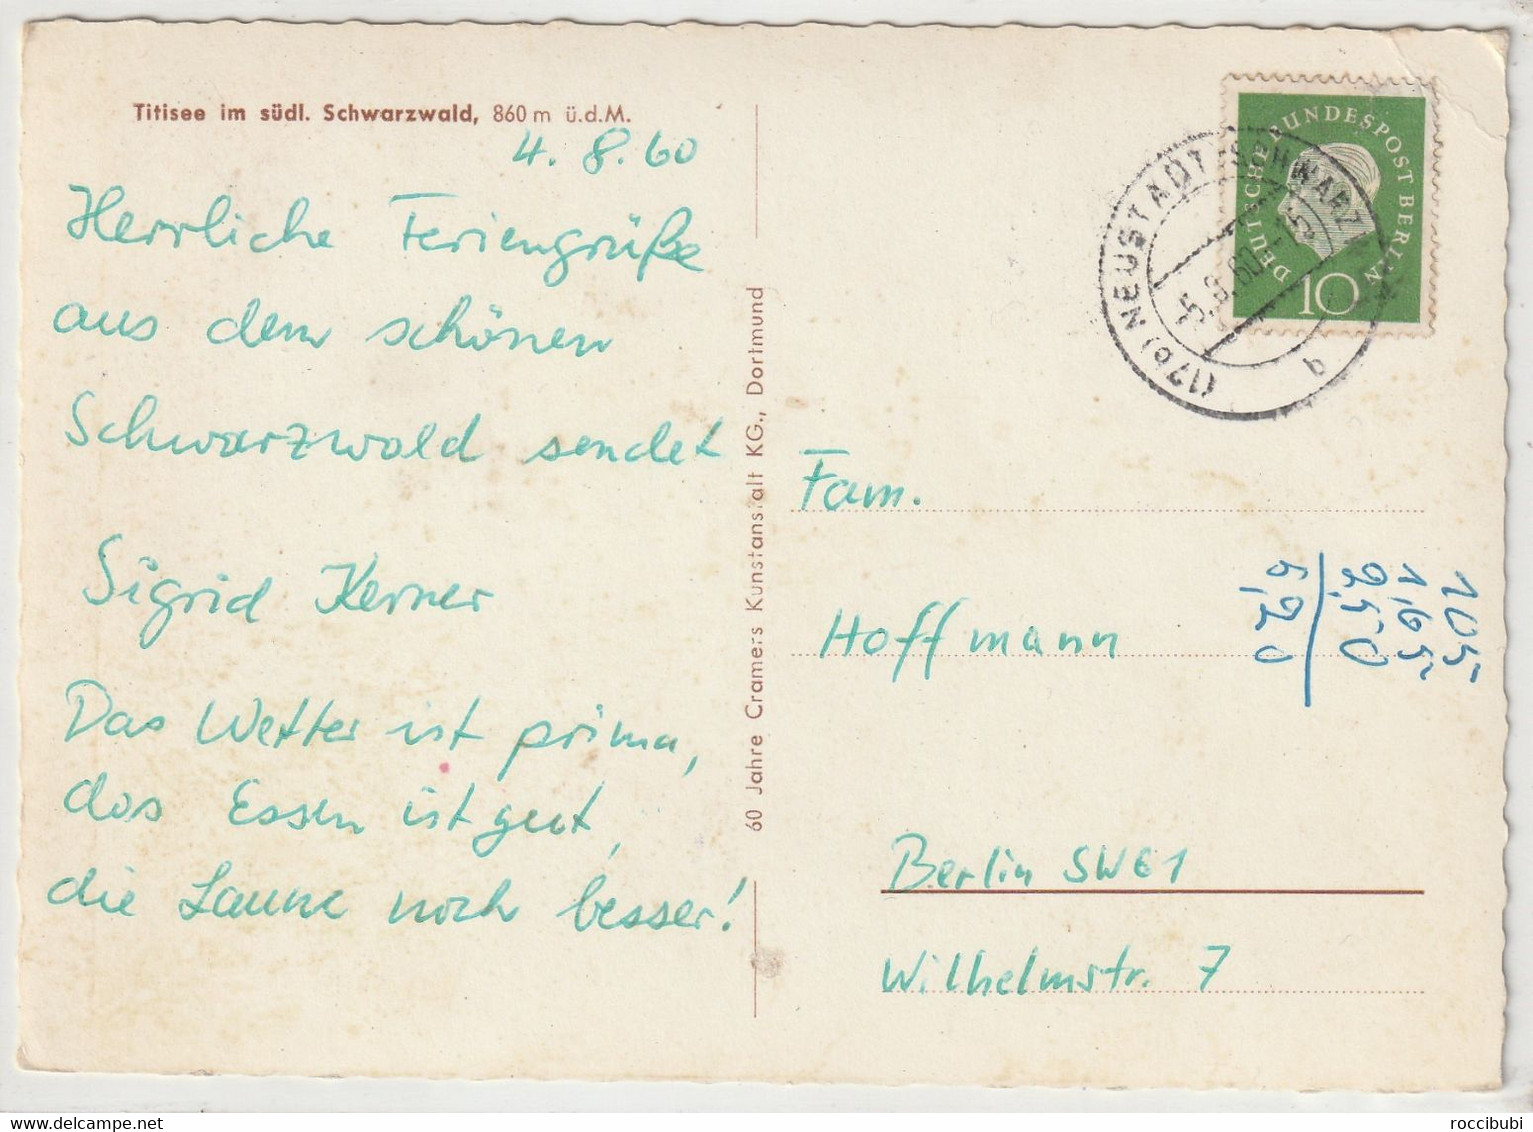 Titisee im südl. Schwarzwald, 860 m ü.d.M.
4. 8. 60
Herrliche Feriengrüße
aus dem schönen
Schwarzwald sendet
Sigrid Kerner
Das Wetter ist prima,
das Essen ist gut,
die Laune noch besser!
60 Jahre Cramers Kunstanstalt KG., Dortmund
DEUTSCHE BUNDESPOST BERLIN
10
(17b) NEUSTADT (SCHWARZW)
-5.8.60.-15
b
Fam.
Hoffmann
Berlin SW61
Wilhelmstr. 7
105
1,65
2,50
5,20
www.delcampe.net
roccibubi